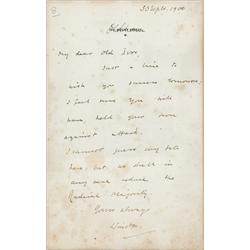 30 Sept. 1900
My dear old Ivor
Just a line to
wish you success tomorrow.
I feel sure you will
have held your own
against attack.
I cannot guess my fate
here, but we shall in
any case reduce the
Radical Majority
Yours always
Winston